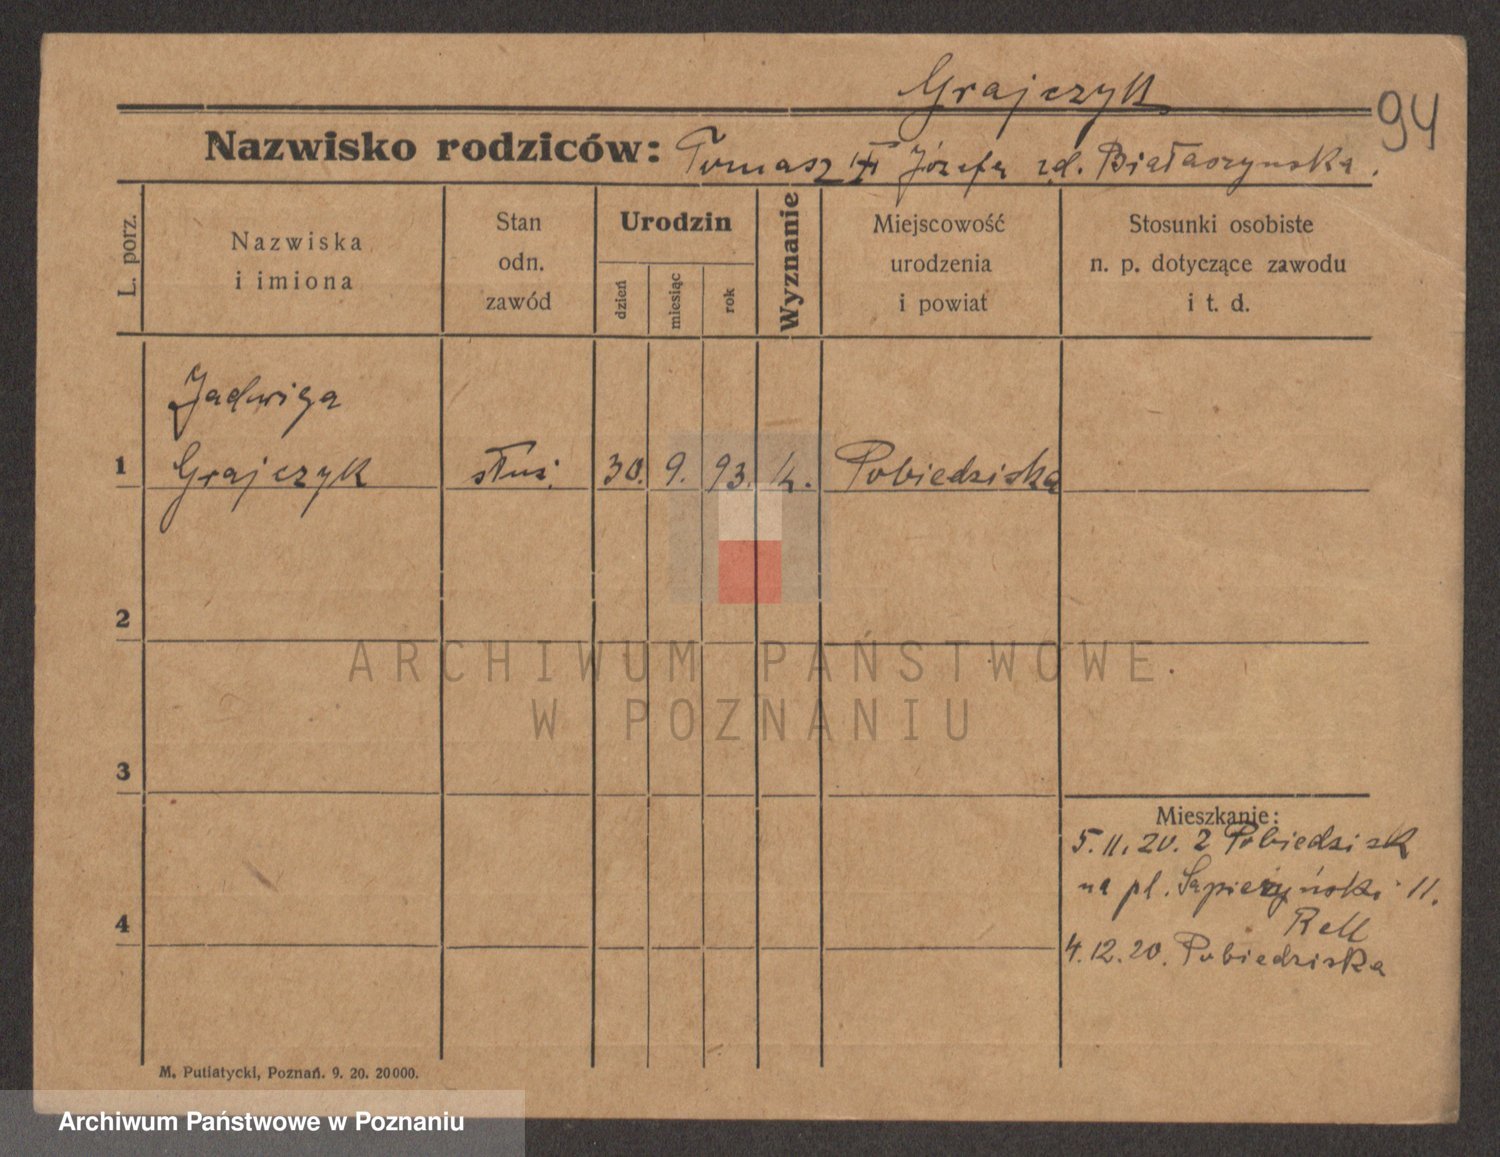 Grajczyk
94
Nazwisko rodziców: Tomasz † Józefa zd. Białaszynska.
L. porz.
Nazwiska
i imiona
Stan
odn.
zawód
Urodzin
dzień
miesiąc
rok
Wyznanie
Miejscowość
urodzenia
i powiat
Stosunki osobiste
n. p. dotyczące zawodu
i t. d.
Jadwiga
1 Grajczyk służ. 30. 9. 93. k. Pobiedziska
2
ARCHIWUM PAŃSTWOWE
W POZNANIU
3
Mieszkanie:
5.11.20. z Pobiedzisk
na pl. Sapieżyński 11.
4
Rell
4.12.20. Pobiedziska
M. Putiatycki, Poznań. 9. 20. 20000.
Archiwum Państwowe w Poznaniu